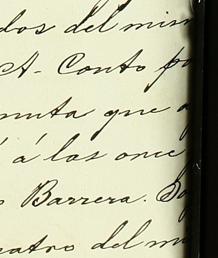 dos del mism
A. Conto po
nuta que a
á las once
Barrera. So
eatro del mi